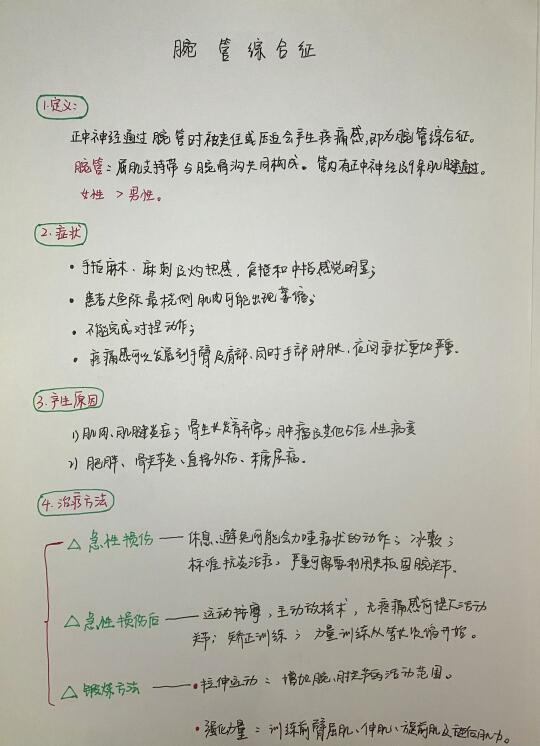 腕管综合征
1.定义:
正中神经通过腕管时被夹住或压迫会产生疼痛感,即为腕管综合征。
腕管:屈肌支持带与腕骨沟共同构成。管内有正中神经及9条肌腱通过。
女性 > 男性。
2.症状
• 手指麻木、麻刺及灼热感,食指和中指感觉明显;
• 患者大鱼际最桡侧肌肉可能出现萎缩;
• 不能完成对捏动作;
• 疼痛感可以发展到手臂及肩部,同时手部肿胀,夜间症状更加严重。
3.产生原因
1) 肌肉、肌腱炎症;骨生长发育异常;肿瘤及其他占位性病变
2) 肥胖、骨关节炎、直接外伤、糖尿病。
4.治疗方法
△ 急性损伤 —— 休息、避免可能会加重症状的动作;冰敷;
标准抗炎治疗,严重可需要利用夹板固腕关节。
△ 急性损伤后 —— 运动按摩,主动放松术,无疼痛感前提下活动
关节;矫正训练;力量训练从等长收缩开始。
△ 锻炼方法 —— • 拉伸运动:增加腕、肘关节的活动范围。
• 强化力量:训练前臂屈肌、伸肌、旋前肌及旋后肌力。